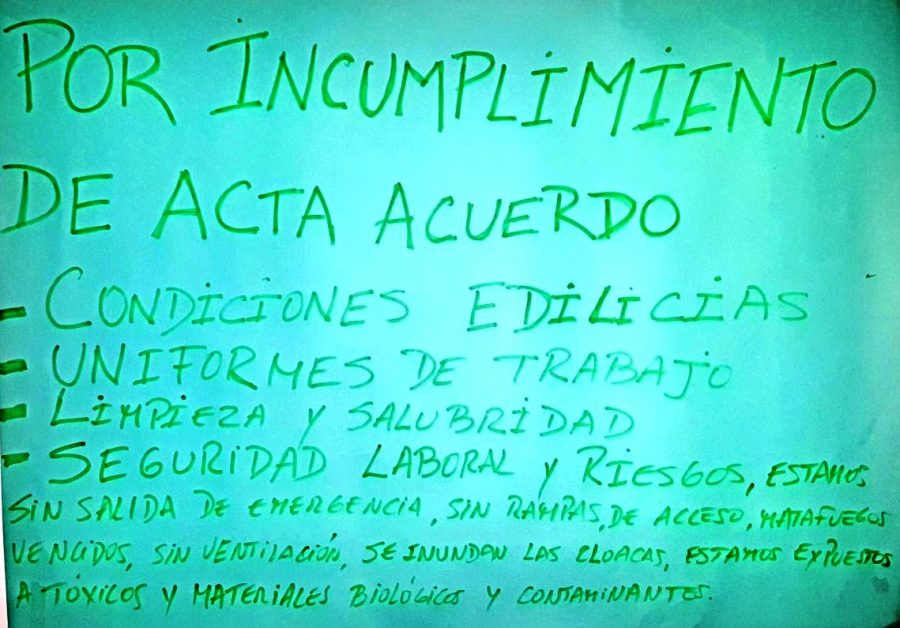 POR INCUMPLIMIENTO
DE ACTA ACUERDO
- CONDICIONES EDILICIAS
- UNIFORMES DE TRABAJO
- LIMPIEZA Y SALUBRIDAD
- SEGURIDAD LABORAL Y RIESGOS, ESTAMOS
SIN SALIDA DE EMERGENCIA, SIN RAMPAS, DE ACCESO, MATAFUEGOS
VENCIDOS, SIN VENTILACIÓN, SE INUNDAN LAS CLOACAS, ESTAMOS EXPUESTOS
A TÓXICOS Y MATERIALES BIOLÓGICOS Y CONTAMINANTES.